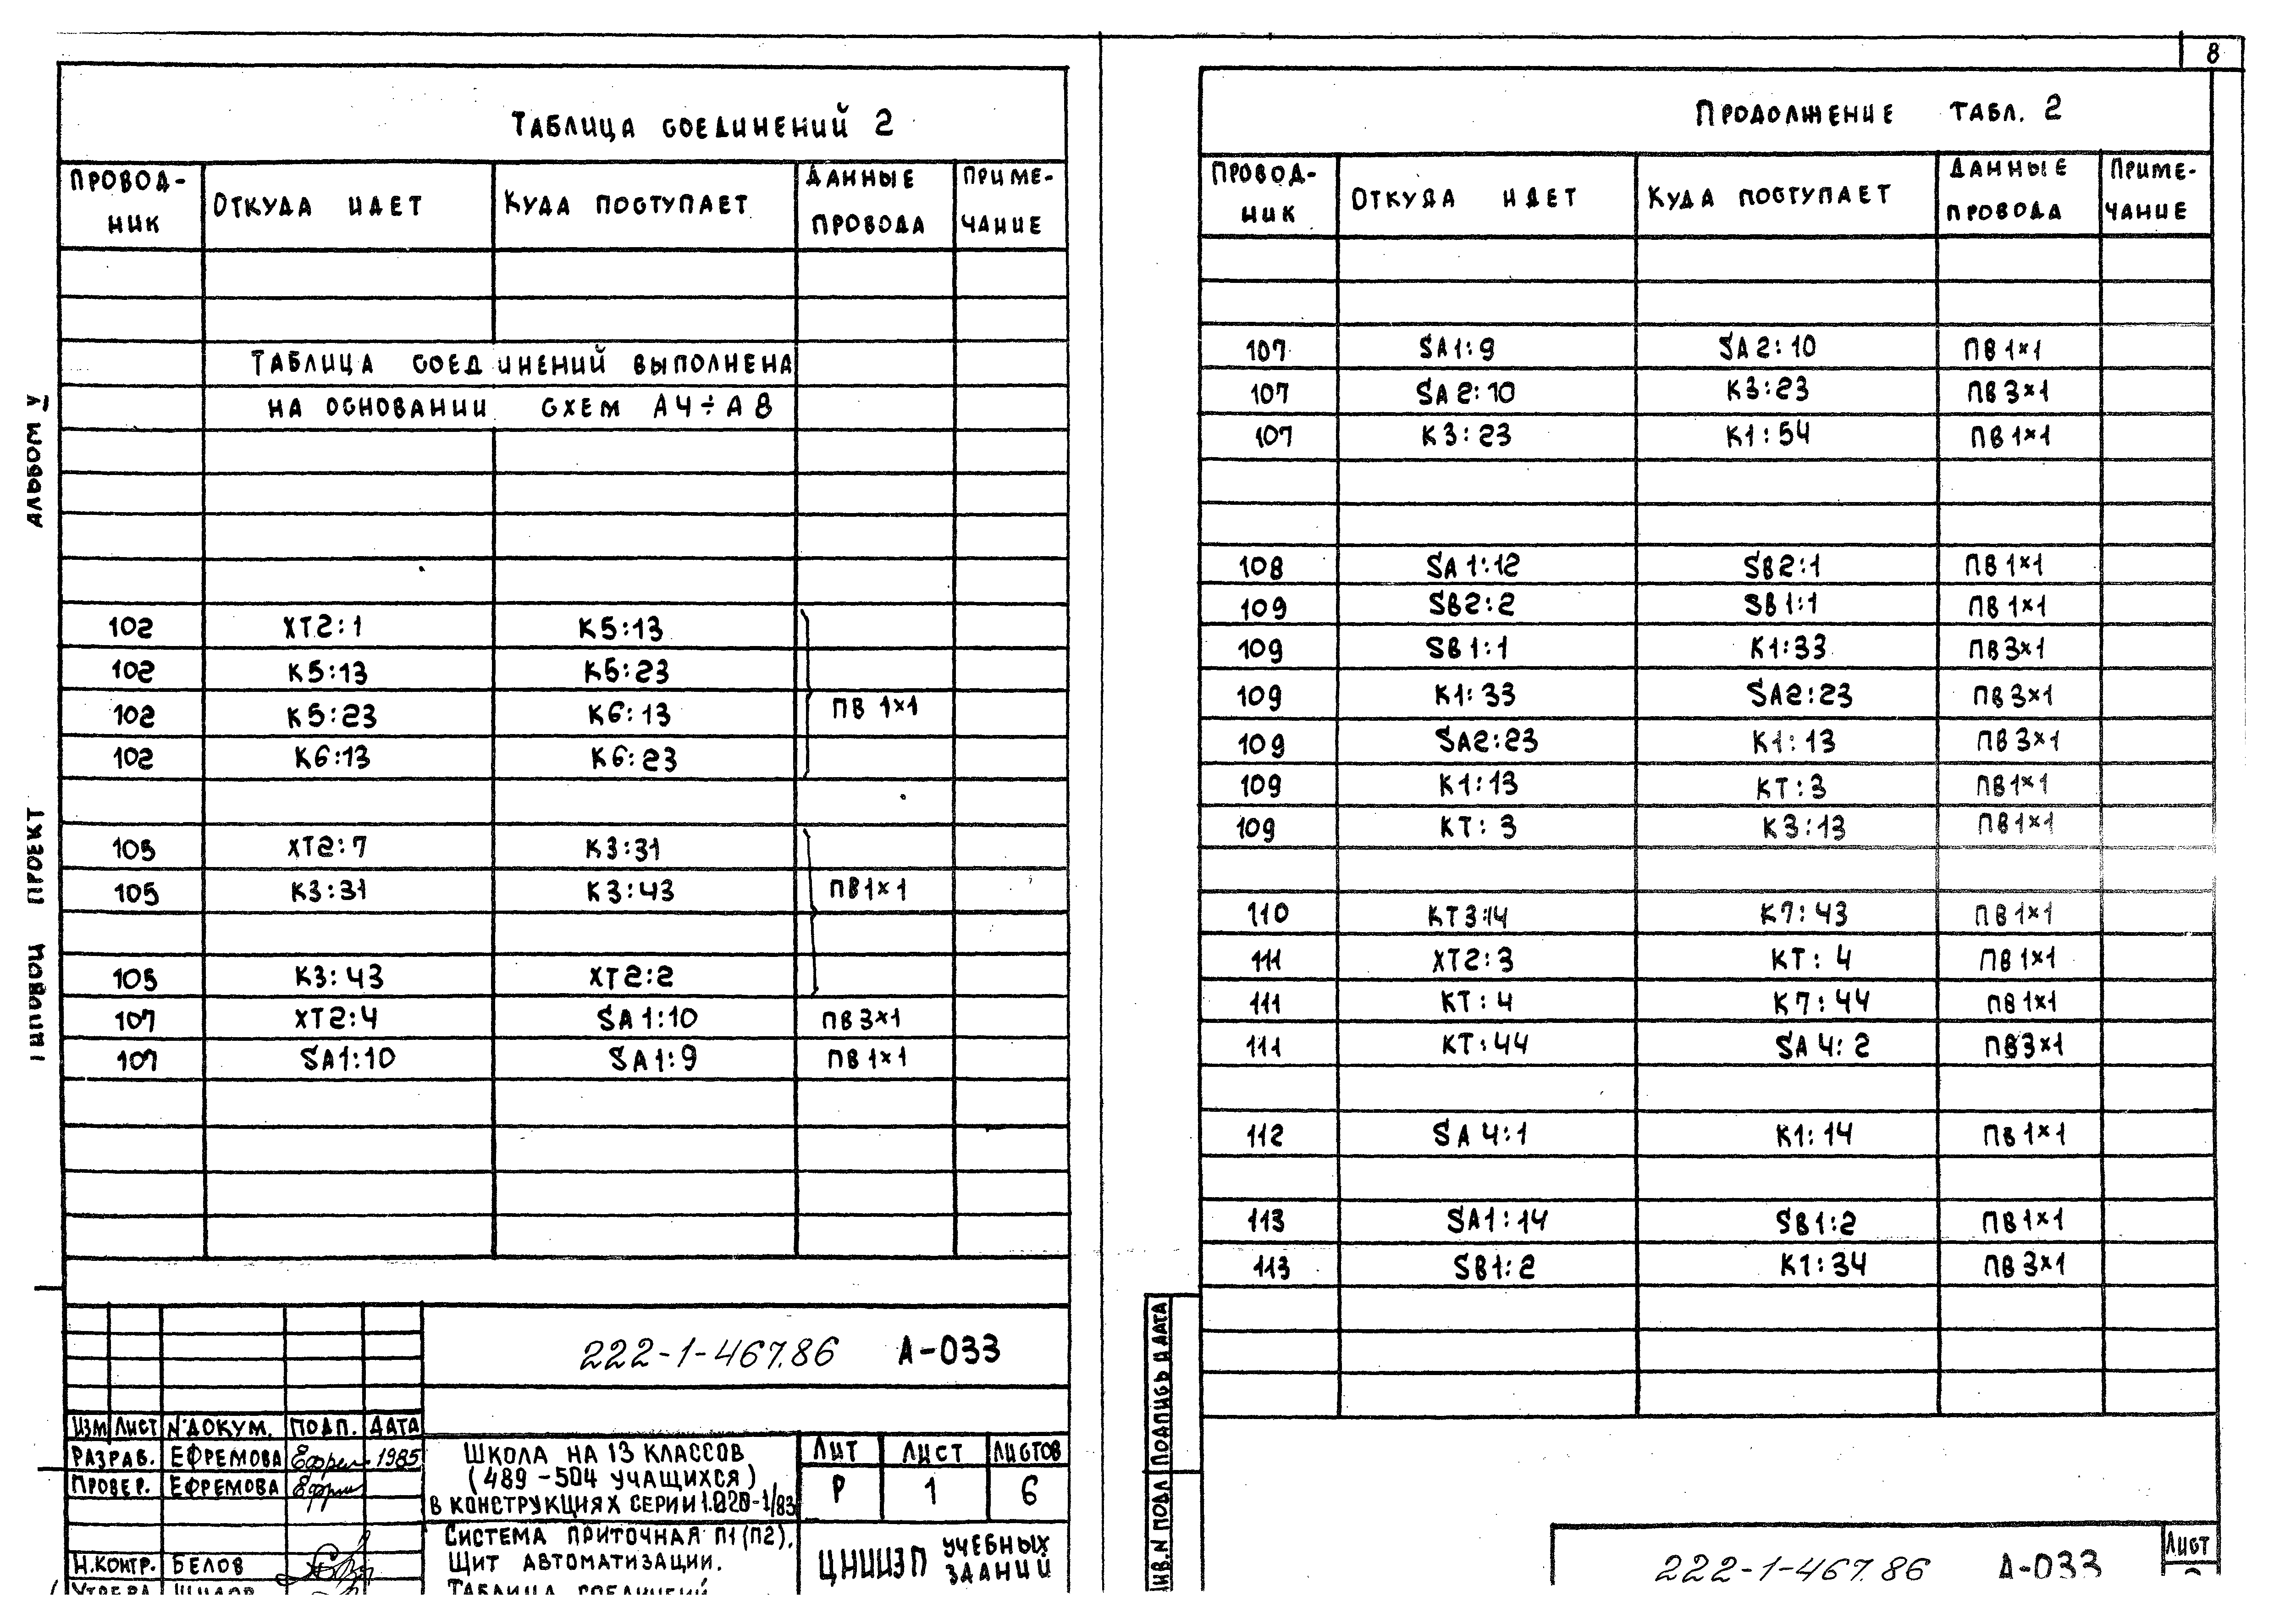 8
Таблица соединений 2
Провод-
ник
Откуда идет
Куда поступает
Данные
провода
Приме-
чание
Таблица соединений выполнена
на основании схем А4÷А8
102 XT2:1 K5:13
102 K5:13 K5:23
102 K5:23 K6:13 ПВ 1×1
102 K6:13 K6:23
105 XT2:7 K3:31
105 K3:31 K3:43 ПВ1×1
105 K3:43 XT2:2
107 XT2:4 SA1:10 ПВ3×1
107 SA1:10 SA1:9 ПВ1×1
Альбом V
Типовой проект
222-1-467.86 А-033
Изм Лист № докум. Подп. Дата
Разраб. Ефремова 1985
Провер. Ефремова
Н.контр. Белов
Школа на 13 классов
(489-504 учащихся)
в конструкциях серии 1.020-1/83
Система приточная П1(П2).
Щит автоматизации.
Лит Лист Листов
Р 1 6
ЦНИИЭП учебных
зданий
Продолжение табл. 2
Провод-
ник
Откуда идет
Куда поступает
Данные
провода
Приме-
чание
107 SA1:9 SA2:10 ПВ1×1
107 SA2:10 K3:23 ПВ3×1
107 K3:23 K1:54 ПВ1×1
108 SA1:12 SB2:1 ПВ1×1
109 SB2:2 SB1:1 ПВ1×1
109 SB1:1 K1:33 ПВ3×1
109 K1:33 SA2:23 ПВ3×1
109 SA2:23 K1:13 ПВ3×1
109 K1:13 KT:3 ПВ1×1
109 KT:3 K3:13 ПВ1×1
110 KT3:14 K7:43 ПВ1×1
111 XT2:3 KT:4 ПВ1×1
111 KT:4 K7:44 ПВ1×1
111 KT:44 SA4:2 ПВ3×1
112 SA4:1 K1:14 ПВ1×1
113 SA1:14 SB1:2 ПВ1×1
113 SB1:2 K1:34 ПВ3×1
Инв.N подл Подпись и дата
222-1-467.86 А-033
Лист